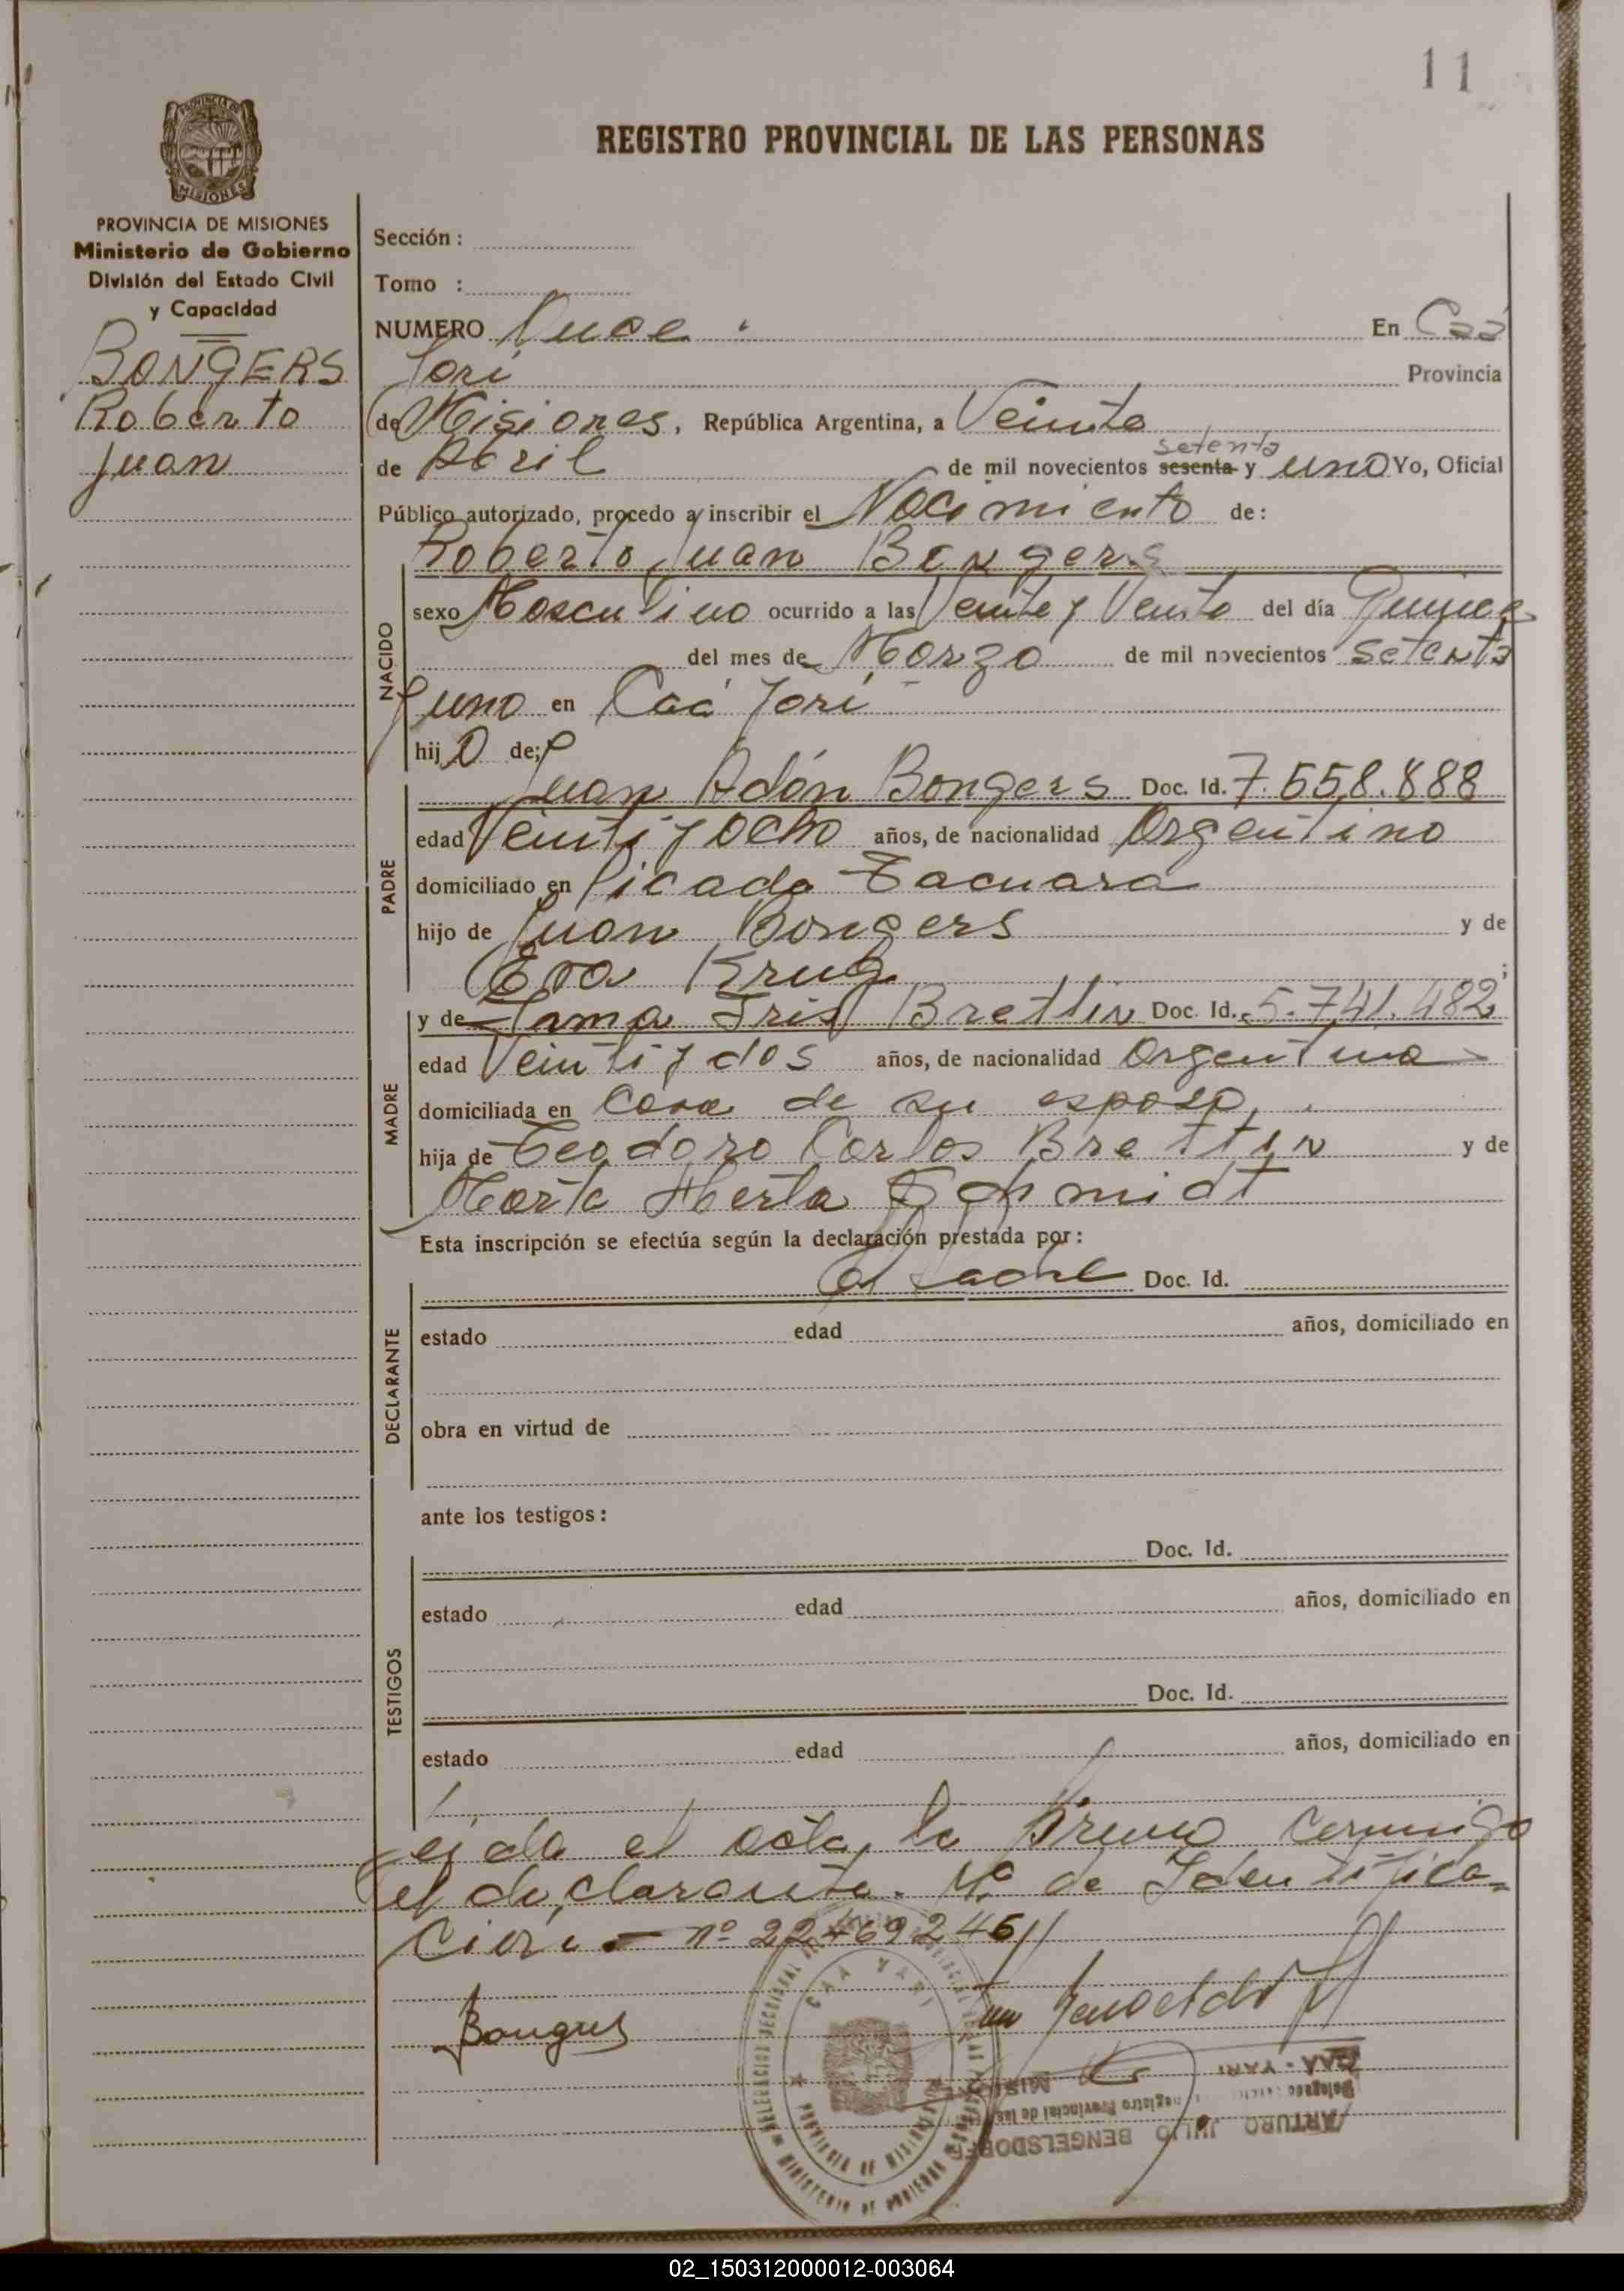 11
REGISTRO PROVINCIAL DE LAS PERSONAS
PROVINCIA DE
MISIONES
PROVINCIA DE MISIONES
Ministerio de Gobierno
División del Estado Civil
y Capacidad
BONGERS
Roberto
Juan
Sección :
Tomo :
NUMERO Once . En Caá
Yarí Provincia
de Misiones, República Argentina, a Veinte
setenta
de Abril de mil novecientos sesenta y uno Yo, Oficial
Público autorizado, procedo a inscribir el Nacimiento de:
Roberto Juan Bongers
NACIDO
sexo Masculino ocurrido a las Veinte y Veinte del día Quince
del mes de Marzo de mil novecientos setenta
y uno en Caá Yarí
hijo de;
PADRE
Juan Adán Bongers Doc. Id. 7.558.888
edad Veinti y ocho años, de nacionalidad Argentino
domiciliado en Picada Tacuara
hijo de Juan Bongers y de
Eva Krug ;
MADRE
y de Irma Iris Brettin Doc. Id. 5.741.482
edad Veinti y dos años, de nacionalidad Argentina
domiciliada en Casa de su esposo,
hija de Teodoro Carlos Brettin y de
Marta Herta Schmidt
Esta inscripción se efectúa según la declaración prestada por :
DECLARANTE
El Padre Doc. Id.
estado edad años, domiciliado en
obra en virtud de
ante los testigos :
TESTIGOS
Doc. Id.
estado edad años, domiciliado en
Doc. Id.
estado edad años, domiciliado en
Leida el acta, la firma conmigo
el declarante. Nº de Identifica-
ción.- nº 22469246
Bongers
CAA YARI
PROVINCIA DE MISIONES
MINISTERIO DE GOBIERNO
CAA - YARI
MISIONES
Registro Provincial de las
ARTURO JULIO BENGELSDORFF
02_150312000012-003064